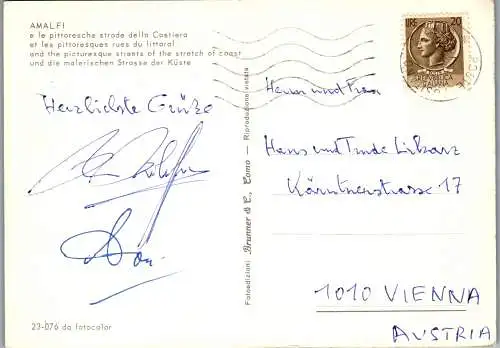 AMALFI
e le pittoresche strade della Costiera
et les pittoresques rues du littoral
and the picturesque strants of the stretch of coast
und die malerischen Strasse der Küste
Herzlichste Grüße
23-076 da fotocolor
Fotoedizioni Brunner & C., Como — Riproduzione vietata
LIRE 20
Herrn und Frau
Hans und Trude Lirkarz
Kärntnerstrasse 17
1010 VIENNA
AUSTRIA